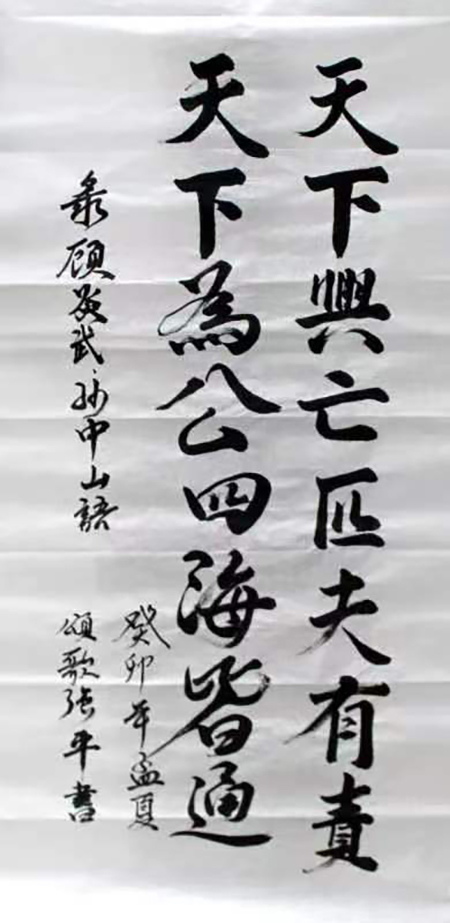 天下興亡匹夫有責
天下為公四海皆通
录顾炎武、孙中山語
癸卯年孟夏
頌歌强平書